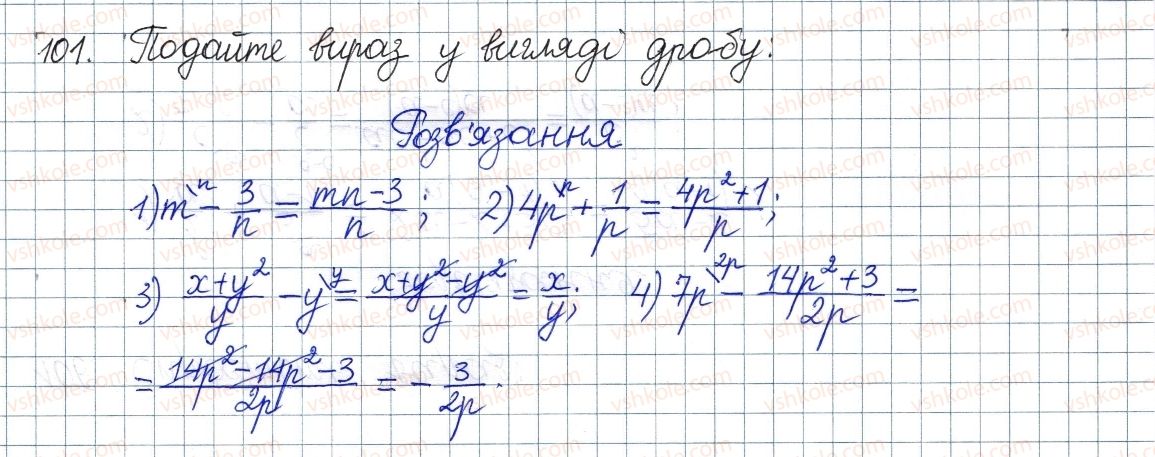 101. Подайте вираз у вигляді дробу:
Розв'язання
1) m\ⁿ - 3/n = (mn-3)/n ; 2) 4p\ᵖ + 1/p = (4p²+1)/p ;
3) (x+y²)/y - y\ʸ = (x+y²-y²)/y = x/y ; 4) 7p\²ᵖ - (14p²+3)/2p =
= (14p²-14p²-3)/2p = - 3/2p .